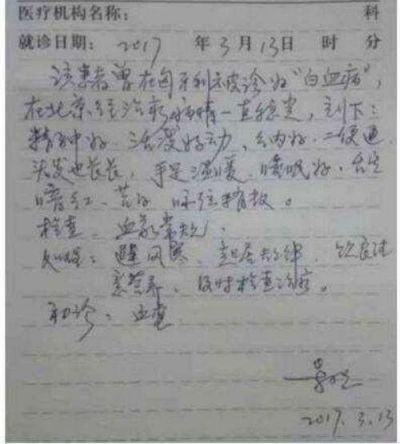 医疗机构名称: 科
就诊日期: 2017 年 3 月 13 日 时 分
该患者曾在匈牙利被诊为"白血病",
在北京经治疗病情一直稳定,刻下:
精神好、活泼好动,纳好、二便通
头发也长长,手足温暖,睡眠好,舌
暗红、苔
检查:血象
处理:避风寒、起居规律、饮食
营养、及时检查治疗。
初诊:
2017.3.13